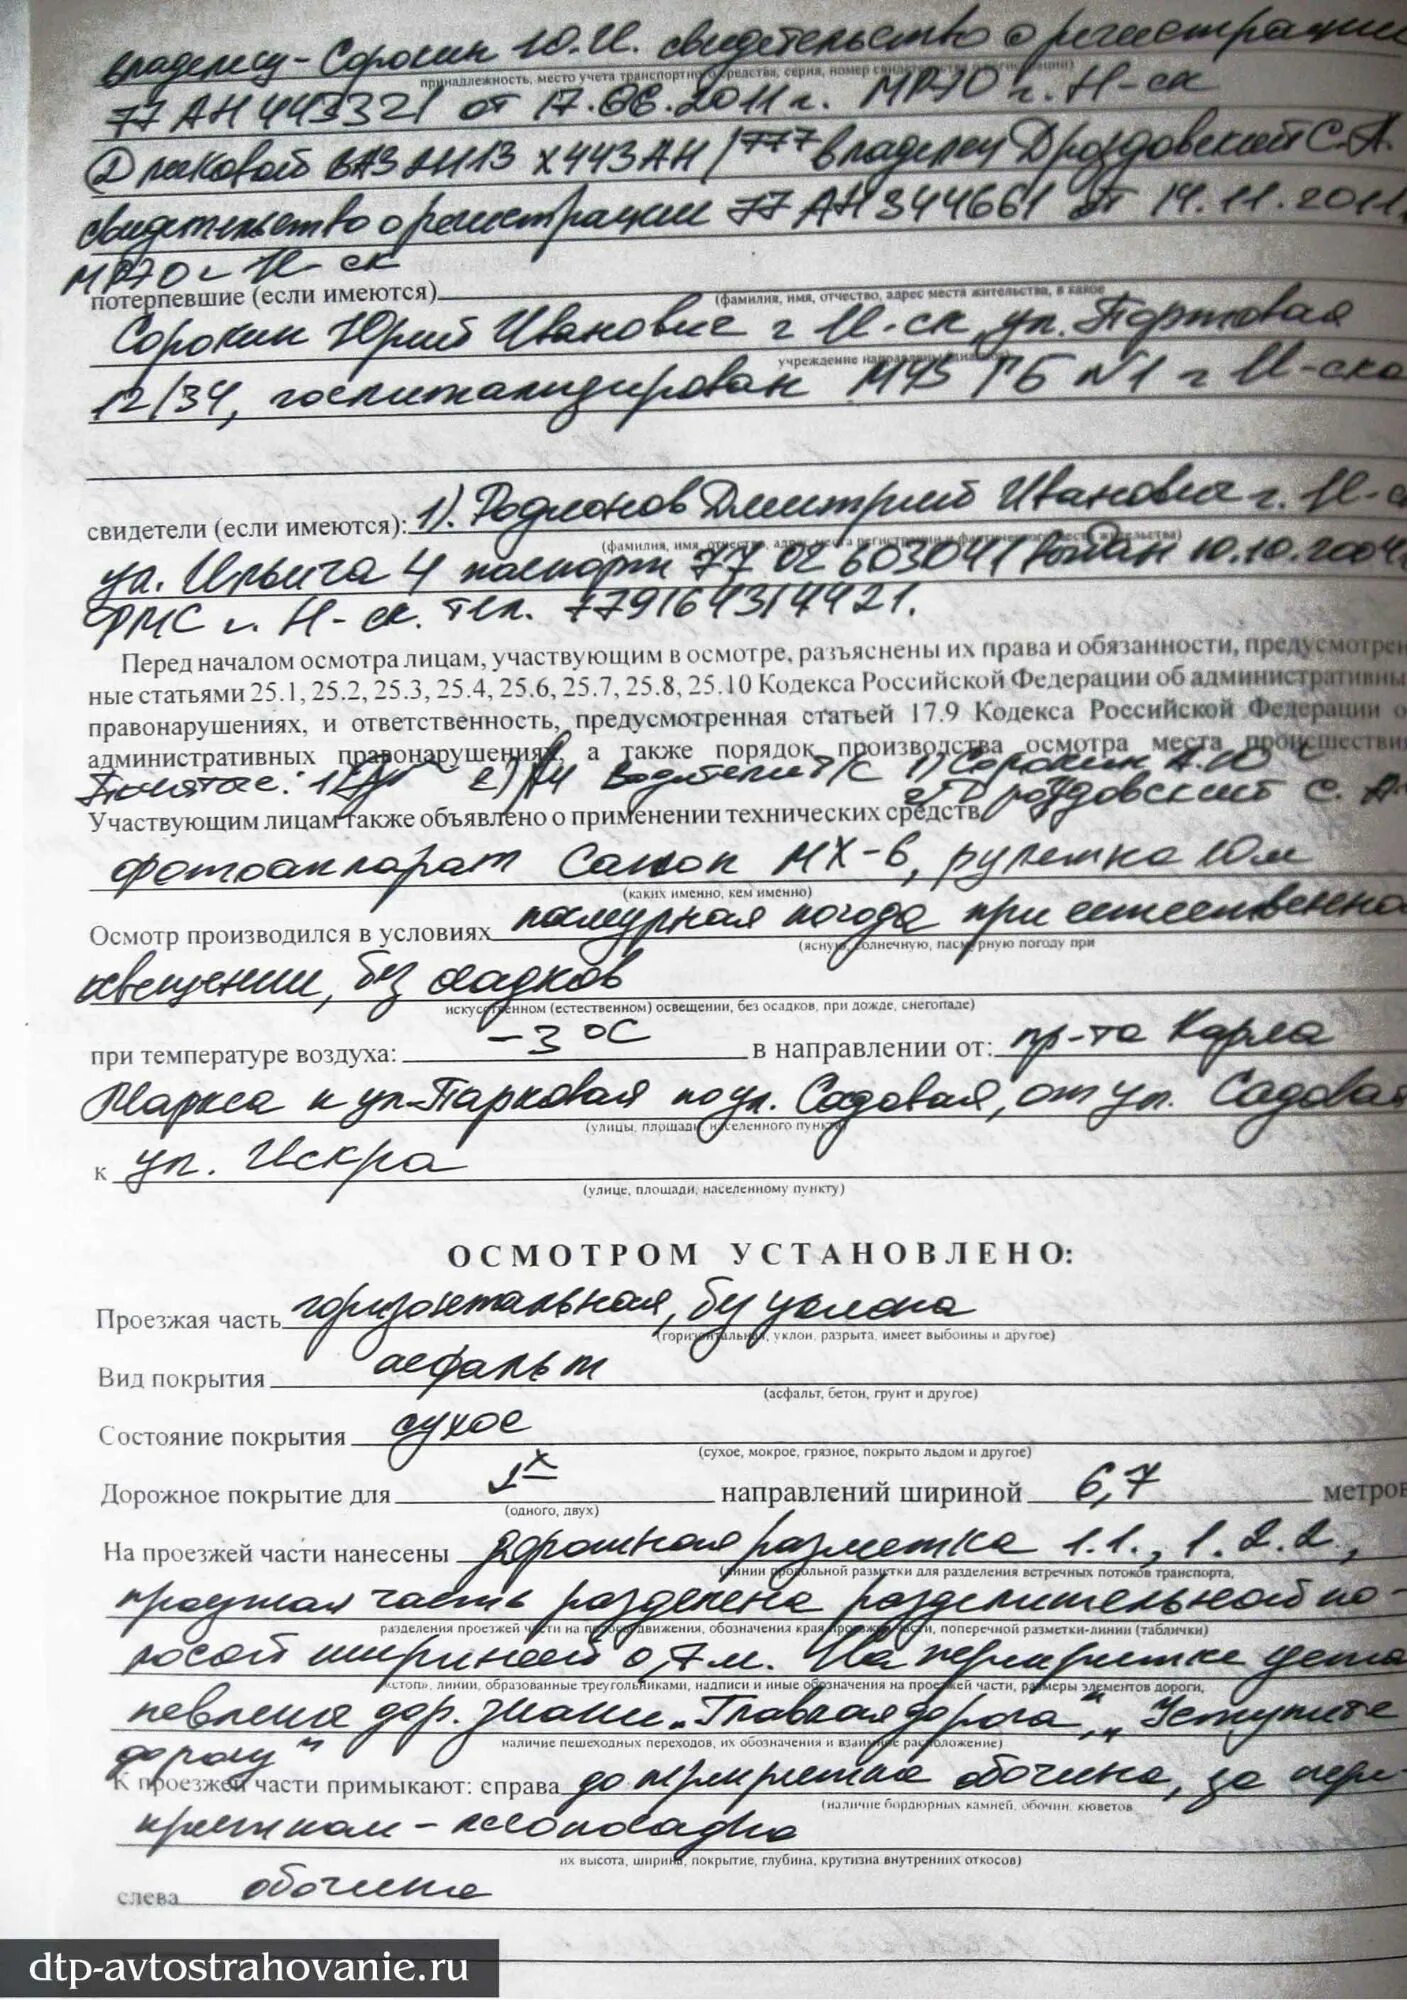 владелец - Сорокин Ю.И. свидетельство о регистрации
принадлежность, место учета транспортного средства, серия, номер свидетельства о регистрации)
77 АН 443321 от 17.06.2011 г. МРЭО г. Н-ск
ВАЗ 21113 Х443АН/777 владелец Дроздовский С.А.
свидетельство о регистрации 77 АН 344661 от 14.11.2011,
МРЭО г. Н-ск
потерпевшие (если имеются)
(фамилия, имя, отчество, адрес места жительства, в какое
Сорокин Юрий Иванович г Н-ск, ул. Портовая
учреждение направлены
12/34, госпитализирован МУЗ ГБ N1 г Н-ска
свидетели (если имеются): 1). Родионов Дмитрий Иванович г. Н-ск
(фамилия, имя, отчество, адрес места регистрации и фактического места жительства)
ул. Ильича 4 паспорт 77 02 603041 выдан 10.10.2004
ФМС г. Н-ск. тел. 779164314421.
Перед началом осмотра лицам, участвующим в осмотре, разъяснены их права и обязанности, предусмотрен
ные статьями 25.1, 25.2, 25.3, 25.4, 25.6, 25.7, 25.8, 25.10 Кодекса Российской Федерации об административных
правонарушениях, и ответственность, предусмотренная статьей 17.9 Кодекса Российской Федерации о
административных правонарушениях, а также порядок производства осмотра места происшествия
Понятые: 1) 2) Водители т/с 1) Сорокин А.Ю
2) Дроздовский С. А.
Участвующим лицам также объявлено о применении технических средств
фотоаппарат Canon МХ-6, рулетка 10м
(каких именно, кем именно)
Осмотр производился в условиях пасмурная погода при естественно
(ясную, солнечную, пасмурную погоду при
освещении, без осадков
искусственном (естественном) освещении, без осадков, при дожде, снегопаде)
при температуре воздуха: -3 °С в направлении от: пр-та Карла
Маркса к ул. Парковая по ул. Садовая, от ул. Садовая
(улицы, площади, населенного пункта)
к ул. Искра
(улице, площади, населенному пункту)
ОСМОТРОМ УСТАНОВЛЕНО:
Проезжая часть горизонтальная, без уклона
(горизонтальная, уклон, разрыта, имеет выбоины и другое)
Вид покрытия асфальт
(асфальт, бетон, грунт и другое)
Состояние покрытия сухое
(сухое, мокрое, грязное, покрыто льдом и другое)
Дорожное покрытие для 2х направлений шириной 6,7 метров
(одного, двух)
На проезжей части нанесены дорожная разметка 1.1., 1.2.2,
(линии продольной разметки для разделения встречных потоков транспорта,
проезжая часть разделена разделительной по-
разделения проезжей части на полосы движения, обозначения края проезжей части, поперечной разметки-линии (таблички)
лосой шириной 0,7м. На перекрестке уста
«стоп», линии, образованные треугольниками, надписи и иные обозначения на проезжей части, размеры элементов дороги,
новлены дор. знаки „Главная дорога", „Уступите
наличие пешеходных переходов, их обозначения и взаимное расположение)
дорогу"
К проезжей части примыкают: справа до перекрестка обочина, за пере-
(наличие бордюрных камней, обочин, кюветов
крестком - лесопосадка
их высота, ширина, покрытие, глубина, крутизна внутренних откосов)
слева обочина
dtp-avtostrahovanie.ru